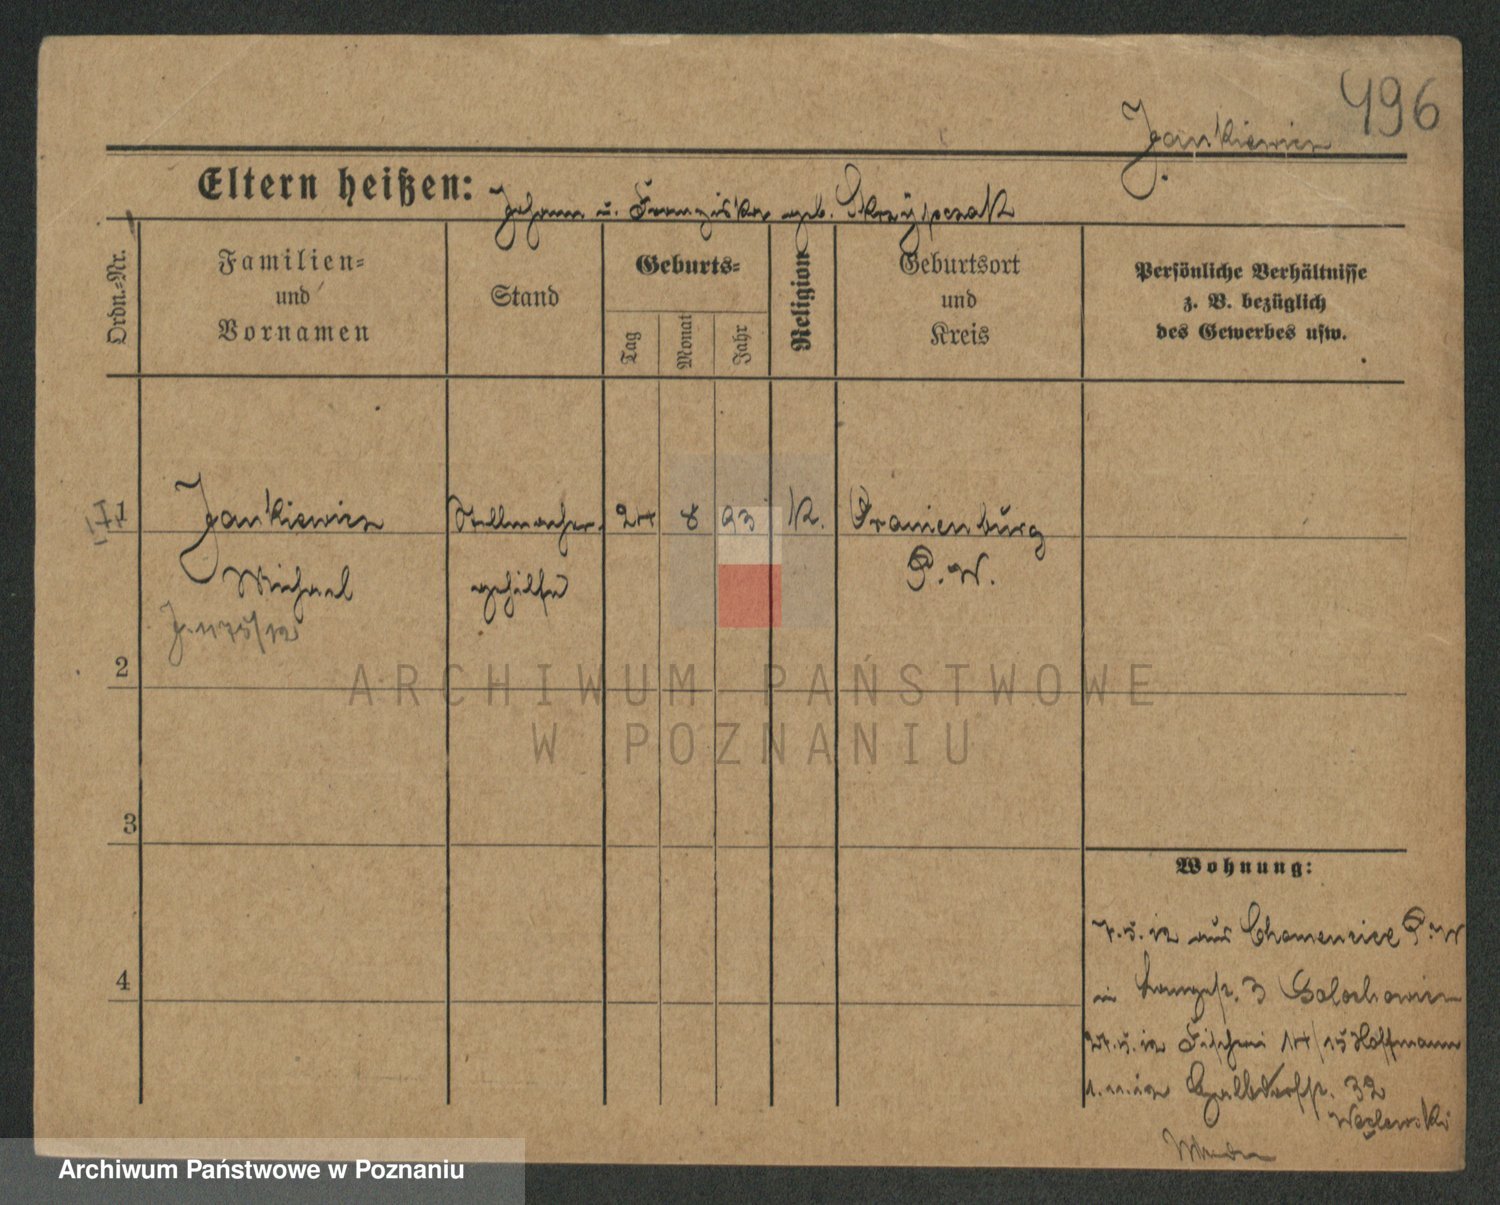 496
Jankiewicz
Eltern heißen: Johann u. Franziska geb. Skrzypczak
Ordn.=Nr.
Familien=
und
Vornamen
Stand
Geburts=
Tag
Monat
Jahr
Religion
Geburtsort
und
Kreis
Persönliche Verhältnisse
z. B. bezüglich
des Gewerbes usw.
1 Jankiewicz Stellmacher- 24 8 93 K. Oranienburg
Michael gehilfe P. W.
J. 1175/12
2
ARCHIWUM PAŃSTWOWE
W POZNANIU
3
4
Wohnung:
7.5.12 aus Chomencice P. W
in Langestr. 3
27.5.12 Fischerei 14/15 Hoffmann
1.11.12 32
Węclewski
Archiwum Państwowe w Poznaniu